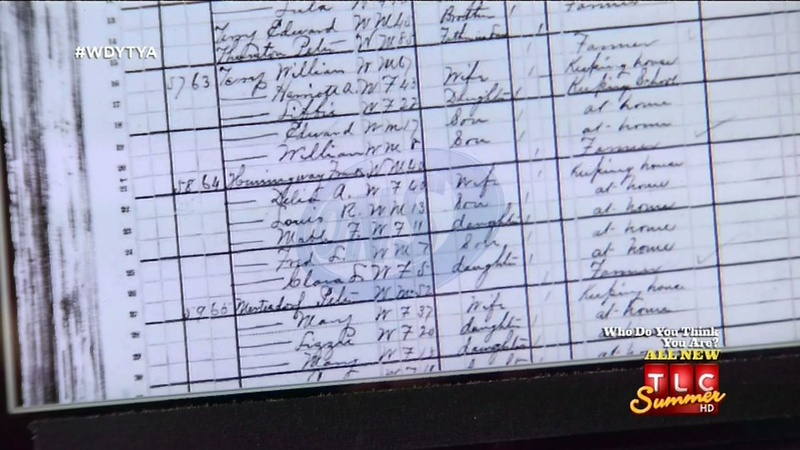 #WDYTYA
Lula
13 Terry Edward W M 45 Brother Farmer
14 Thornton Peter W M 85
15 57 63 Terry William W M Farmer
16 Harriet A. W F 43 Wife Keeping house
17 Libbie W F 22 Daughter Keeping School
18 Edward W M 17 Son at home
19 William W M 8 Son at home
20 58 64 Hemingway W M Farmer
21 Delia A. W F 43 Wife Keeping house
22 Louis R. W M 13 Son at home
23 Mable F. W F 11 daughter at home
24 Fred L. W M 7 Son at home
25 Clara L. W F 5 daughter at home
26 59 65 Peter W M 52 Farmer
27 Mary W F 37 Wife Keeping house
28 Lizzie W F 20 daughter at home
29 Mary W F daughter
30
Who Do You Think
You Are?
ALL NEW
TLC
Summer
HD